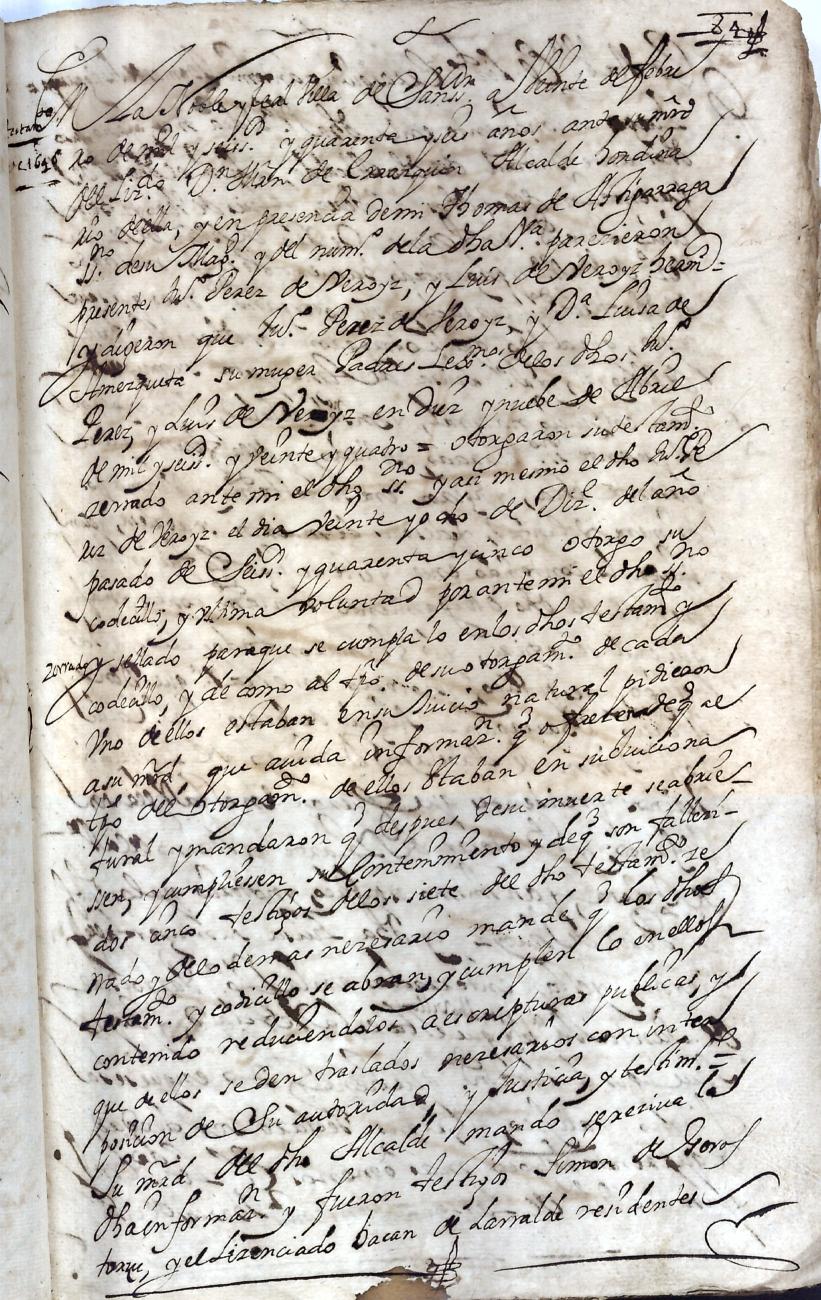 84
En La Noble y leal Villa de Sanss.n a Veinte de febre
ro de mil y seiss. y quarenta y seis años ante su mrd
del Liz.do D.n Mñn de Errarquin Alcalde hordina
rio della, y en presencia de mi Thomas de Ahiparraga
ss.no de su Mag. y del num.o de la dha V.a parezieron
presentes Ju.o Perez de Veroyz, y Luis de Veroyz herm.os =
y digeron que Ju.o Perez de Veroyz, y D.a Luisa de
Amezqueta su muger Padres Lex.mos de los dhos Ju.o
Perez, y Luis de Veroyz en diez y nuebe de Abril
de mil y seis. y veinte y quatro = otorgaron su testam.to
zerrado ante mi el dho ss.no y asi mesmo el dho Ju.o Pe
rez de Veroyz el dia Veinte y ocho de Diz.e del año
pasado de Seiss. y quarenta y cinco otorgo su
codecillo, y vltima voluntad por ante mi el dho ss.no
zerrado y sellado para que se cumpla lo en los dhos testam.to y
codecillo, y de como al tpo. de su otorgam.to de cada
Vno de ellos estaban en su Juicio natural pidieron
a su mrd, que avida informaz.n q.e ofrezen de q.e al
tpo del otorgam.to de ellos Estaban en su Juicio na
tural y mandaron q.e despues de su muerte se abrie
ssen, y cumpliessen su Contenimiento y de q.e son falleci
dos cinco testigos de los siete del dho testam.to ze
rrado y de lo demas nezesario mande q.e los dhos
testam.to y codicillo se abran, y cumplen lo en ellos
contenido reduciendolos a escripturas publicas, y
que de ellos se den traslados nezesarios con inter
posicion de Su autoridad, y Justicia, y testim.o =
Su mrd del dho Alcalde mando se reziva la
dha informaz.n y fueron testigos Simon de
y el Lizenciado de Larralde residentes